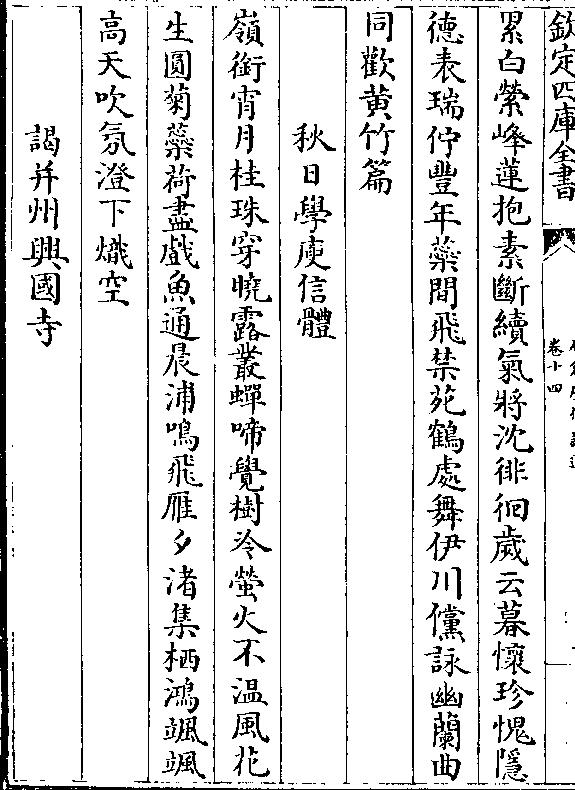 欽定四庫全書
卷十四
累白縈峰蓮抱素斷續氣將沈徘徊歲云暮懷珍愧隱
德表瑞佇豐年蘂間飛禁苑鶴處舞伊川儻詠幽蘭曲
同歡黄竹篇
秋日學庾信體
嶺銜宵月桂珠穿曉露叢蟬啼覺樹冷螢火不温風花
生圓菊蘂荷盡戲魚通晨浦鳴飛雁夕渚集栖鴻颯颯
高天吹氛澄下熾空
謁并州興國寺